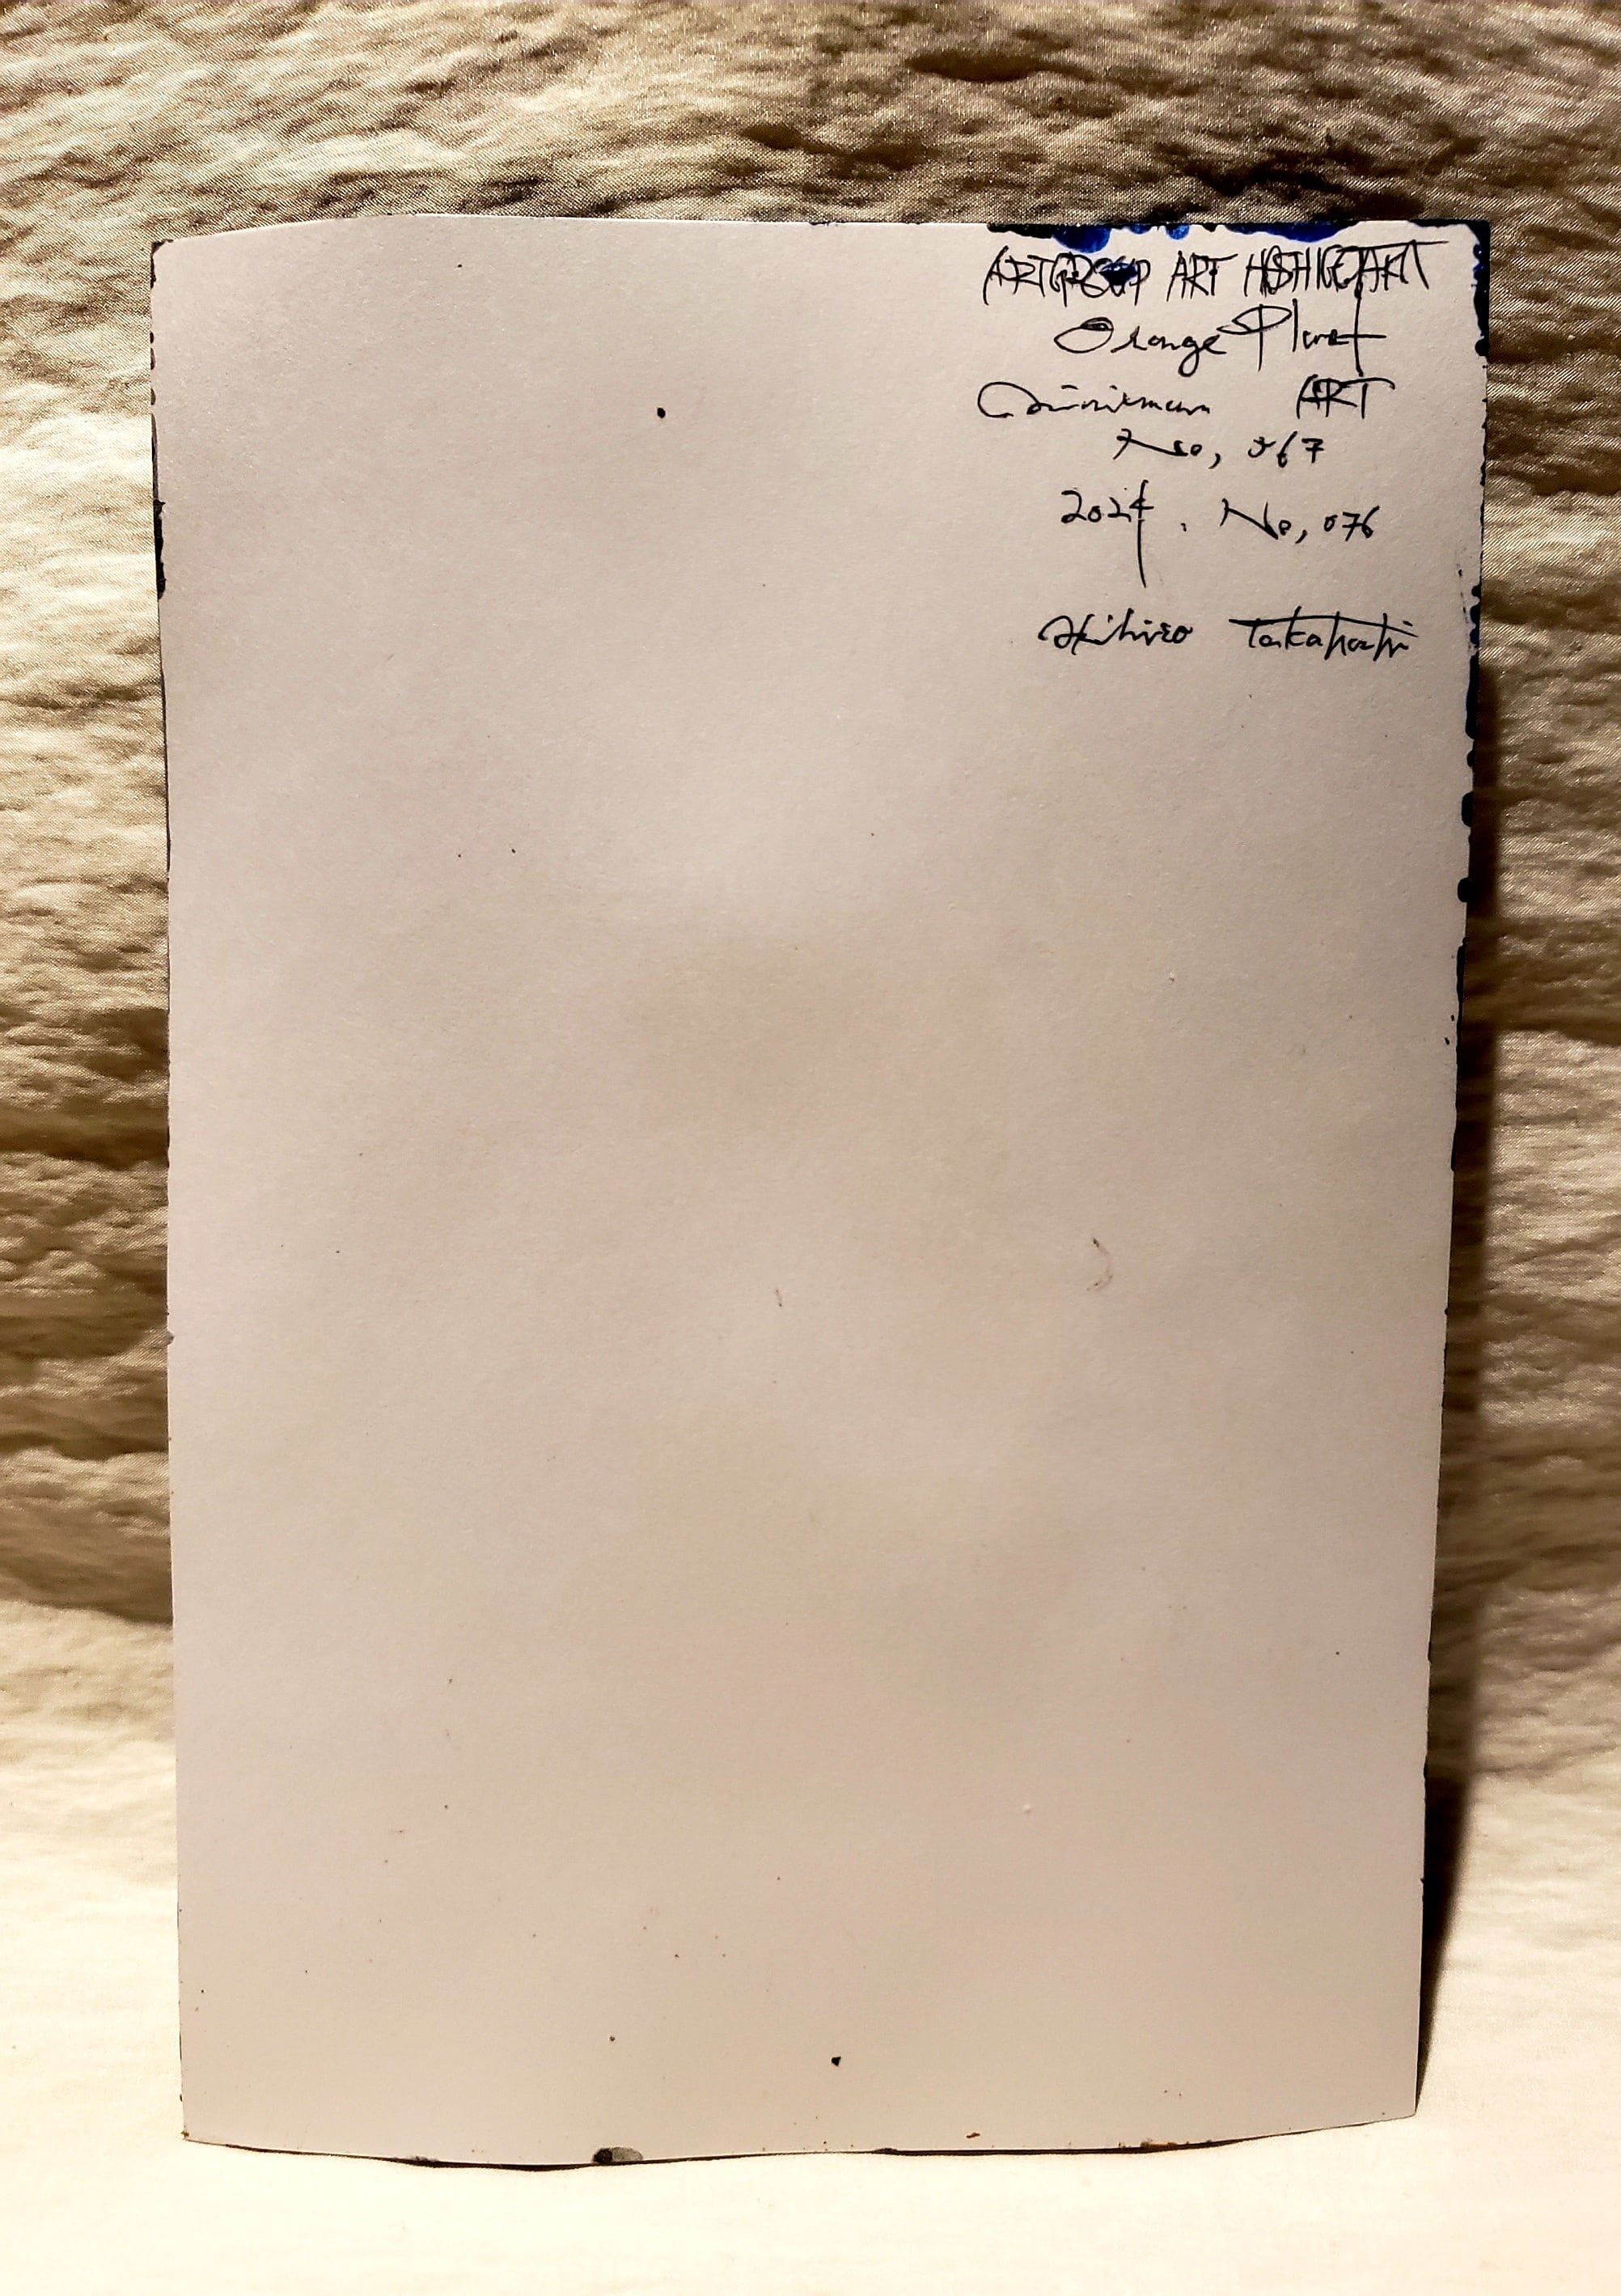 ARTGROUP ART HOSHIGETART
Orange Planet
Minimum ART
No, 067
2024. No, 076
Akihiro Takahashi